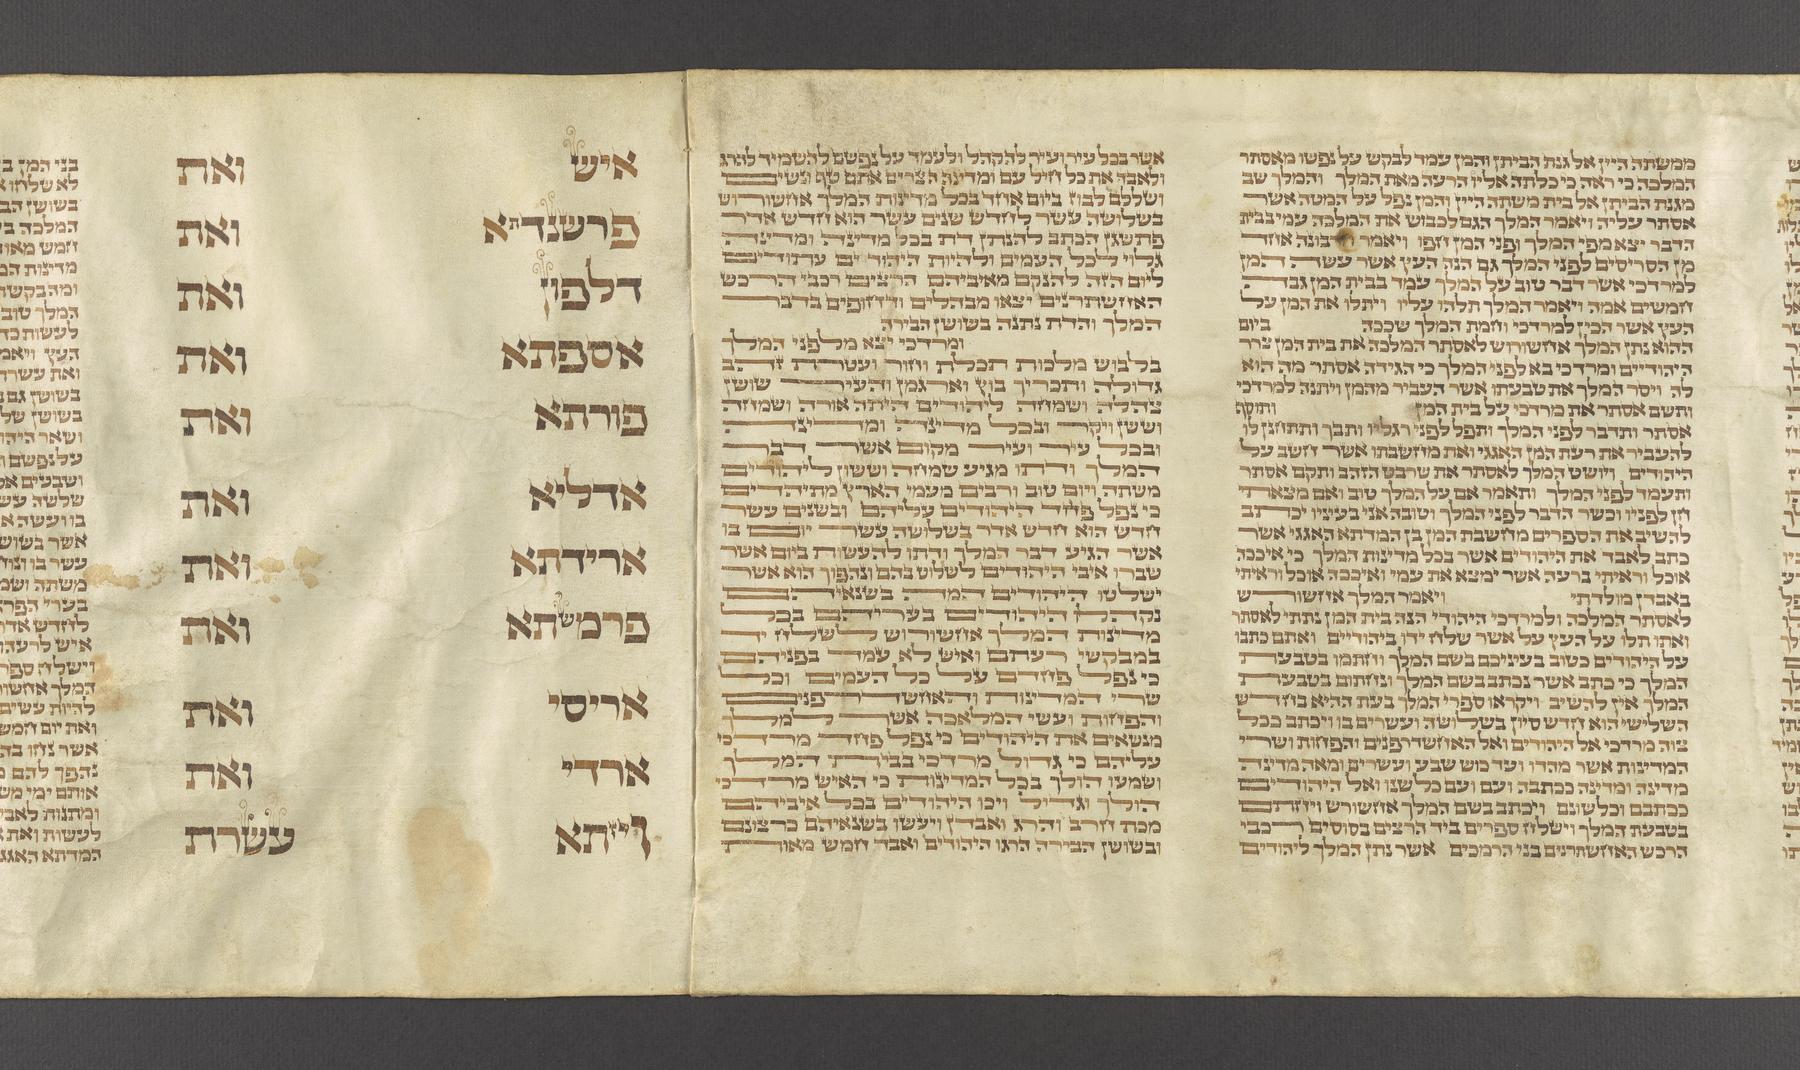 ממשתה היין אל גנת הביתן והמן עמד לבקש על נפשו מאסתר
המלכה כי ראה כי כלתה אליו הרעה מאת המלך והמלך שב
מגנת הביתן אל בית משתה היין והמן נפל על המטה אשר
אסתר עליה ויאמר המלך הגם לכבוש את המלכה עמי בבית
הדבר יצא מפי המלך ופני המן חפו ויאמר בונה אחד
מן הסריסים לפני המלך גם הנה העץ אשר עשה המן
למרדכי אשר דבר טוב על המלך עמד בבית המן גבה
חמשים אמה ויאמר המלך תלהו עליו ויתלו את המן על
העץ אשר הכין למרדכי וחמת המלך שככה ביום
ההוא נתן המלך אחשורוש לאסתר המלכה את בית המן צרר
היהודיים ומרדכי בא לפני המלך כי הגידה אסתר מה הוא
לה ויסר המלך את טבעתו אשר העביר מהמן ויתנה למרדכי
ותשם אסתר את מרדכי על בית המן ותוסף
אסתר ותדבר לפני המלך ותפל לפני רגליו ותבך ותתחנן לו
להעביר את רעת המן האגגי ואת מחשבתו אשר חשב על
היהודים ויושט המלך לאסתר את שרבט הזהב ותקם אסתר
ותעמד לפני המלך ותאמר אם על המלך טוב ואם מצאתי
חן לפניו וכשר הדבר לפני המלך וטובה אני בעיניו יכתב
להשיב את הספרים מחשבת המן בן המדתא האגגי אשר
כתב לאבד את היהודים אשר בכל מדינות המלך כי איככה
אוכל וראיתי ברעה אשר ימצא את עמי ואיככה אוכל וראיתי
באבדן מולדתי ויאמר המלך אחשורוש
לאסתר המלכה ולמרדכי היהודי הנה בית המן נתתי לאסתר
ואתו תלו על העץ על אשר שלח ידו ביהודיים ואתם כתבו
על היהודים כטוב בעיניכם בשם המלך וחתמו בטבעת
המלך כי כתב אשר נכתב בשם המלך ונחתום בטבעת
המלך אין להשיב ויקראו ספרי המלך בעת ההיא בחדש
השלישי הוא חדש סיון בשלושה ועשרים בו ויכתב ככל
צוה מרדכי אל היהודים ואל האחשדרפנים והפחות ושרי
המדינות אשר מהדו ועד כוש שבע ועשרים ומאה מדינה
מדינה ומדינה ככתבה ועם ועם כלשנו ואל היהודים
ככתבם וכלשונם ויכתב בשם המלך אחשורש ויחתם
בטבעת המלך וישלח ספרים ביד הרצים בסוסים רכבי
הרכש האחשתרנים בני הרמכים אשר נתן המלך ליהודים
אשר בכל עיר ועיר להקהל ולעמד על נפשם להשמיד להרג
ולאבד את כל חיל עם ומדינה הצרים אתם טף ונשים
ושללם לבוז ביום אחד בכל מדינות המלך אחשורוש
בשלושה עשר לחדש שנים עשר הוא חדש אדר
פתשגן הכתב להנתן דת בכל מדינה ומדינה
גלוי לכל העמים ולהיות היהודים עתודים
ליום הזה להנקם מאיביהם הרצים רכבי הרכש
האחשתרנים יצאו מבהלים ודחופים בדבר
המלך והדת נתנה בשושן הבירה
ומרדכי יצא מלפני המלך
בלבוש מלכות תכלת וחור ועטרת זהב
גדולה ותכריך בוץ וארגמן והעיר שושן
צהלה ושמחה ליהודים היתה אורה ושמחה
וששן ויקר ובכל מדינה ומדינה
ובכל עיר ועיר מקום אשר דבר
המלך ודתו מגיע שמחה וששון ליהודים
משתה ויום טוב ורבים מעמי הארץ מתיהדים
כי נפל פחד היהודים עליהם ובשנים עשר
חדש הוא חדש אדר בשלושה עשר יום בו
אשר הגיע דבר המלך ודתו להעשות ביום אשר
שברו איבי היהודים לשלוט בהם ונהפוך הוא אשר
ישלטו היהודים המה בשנאיהם
נקהלו היהודים בעריהם בכל
מדינות המלך אחשורוש לשלח יד
במבקשי רעתם ואיש לא עמד בפניהם
כי נפל פחדם על כל העמים וכל
שרי המדינות והאחשדרפנים
והפחות ועשי המלאכה אשר למלך
מנשאים את היהודים כי נפל פחד מרדכי
עליהם כי גדול מרדכי בבית המלך
ושמעו הולך בכל המדינות כי האיש מרדכי
הולך וגדול ויכו היהודים בכל איביהם
מכת חרב והרג ואבדן ויעשו בשנאיהם כרצונם
ובשושן הבירה הרגו היהודים ואבד חמש מאות
איש ואת
פרשנדתא ואת
דלפון ואת
אספתא ואת
פורתא ואת
אדליא ואת
ארידתא ואת
פרמשתא ואת
אריסי ואת
ארדי ואת
ויזתא עשרת
בני המן
לא שלחו
בשושן
המלכה
חמש
מדינות
ומה בקשת
המלך טוב
לעשות
העץ ויאמר
ואת עשרת
בשושן גם
בשושן
ושאר
על נפשם
ושבעים
שלשה
בו ועשה
אשר
עשר בו
משתה
בערי
לחדש אדר
איש לרעהו
וישלח
המלך
להיות
ואת יום
אשר נחו
נהפך להם
אותם ימי
ומתנות
לעשות ואת
המדתא